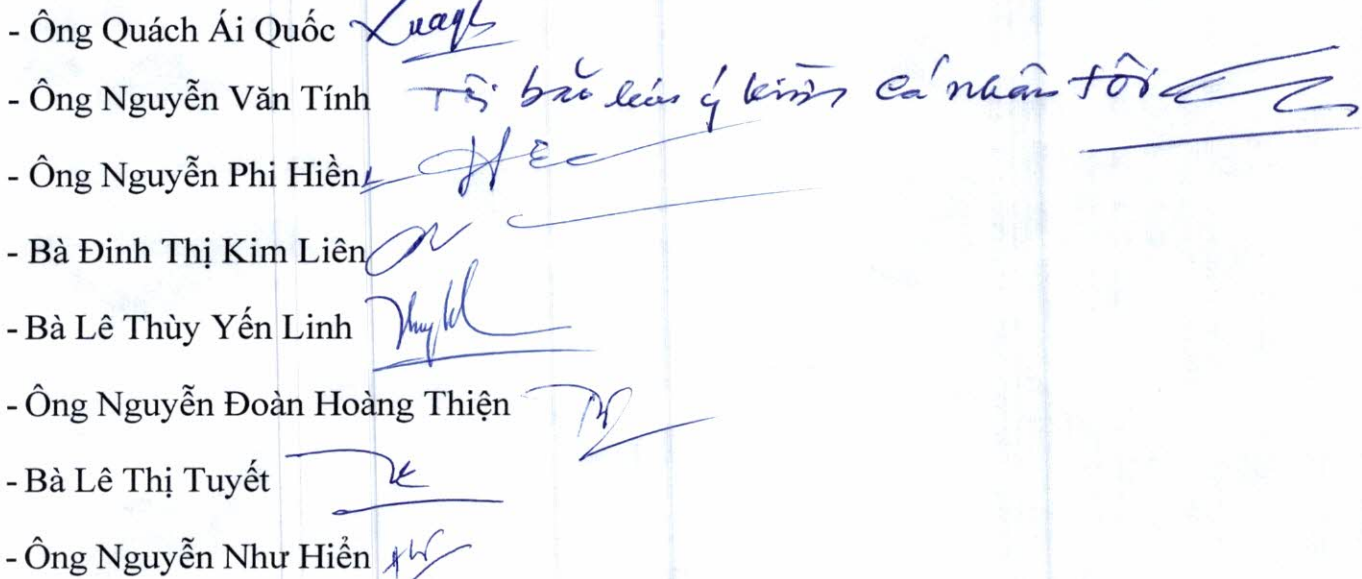 - Ông Quách Ái Quốc
- Ông Nguyễn Văn Tính Tôi bảo lưu ý kiến cá nhân tôi
- Ông Nguyễn Phi Hiền
- Bà Đinh Thị Kim Liên
- Bà Lê Thùy Yến Linh
- Ông Nguyễn Đoàn Hoàng Thiện
- Bà Lê Thị Tuyết
- Ông Nguyễn Như Hiển